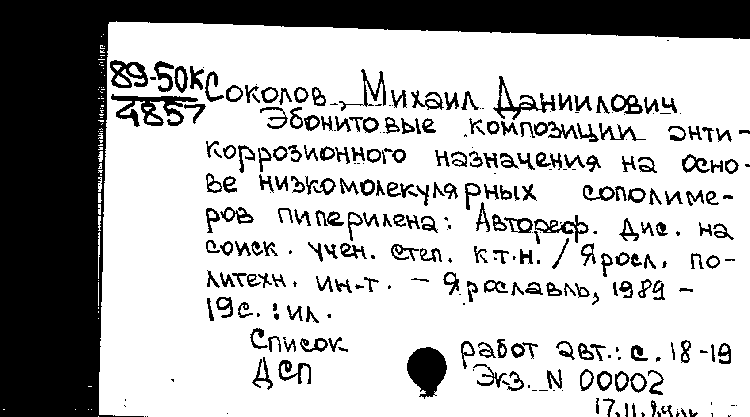 89-50К Соколов, Михаил Даниилович
4857
Эбонитовые композиции анти-
коррозионного назначения на осно-
ве низкомолекулярных сополиме-
ров пиперилена: Автореф. дис. на
соиск. учен. степ. к.т.н. / Яросл. по-
литехн. ин-т. - Ярославль, 1989 -
19с. : ил.
Список работ авт.: с. 18-19
ДСП Экз. N 00002
17.11.